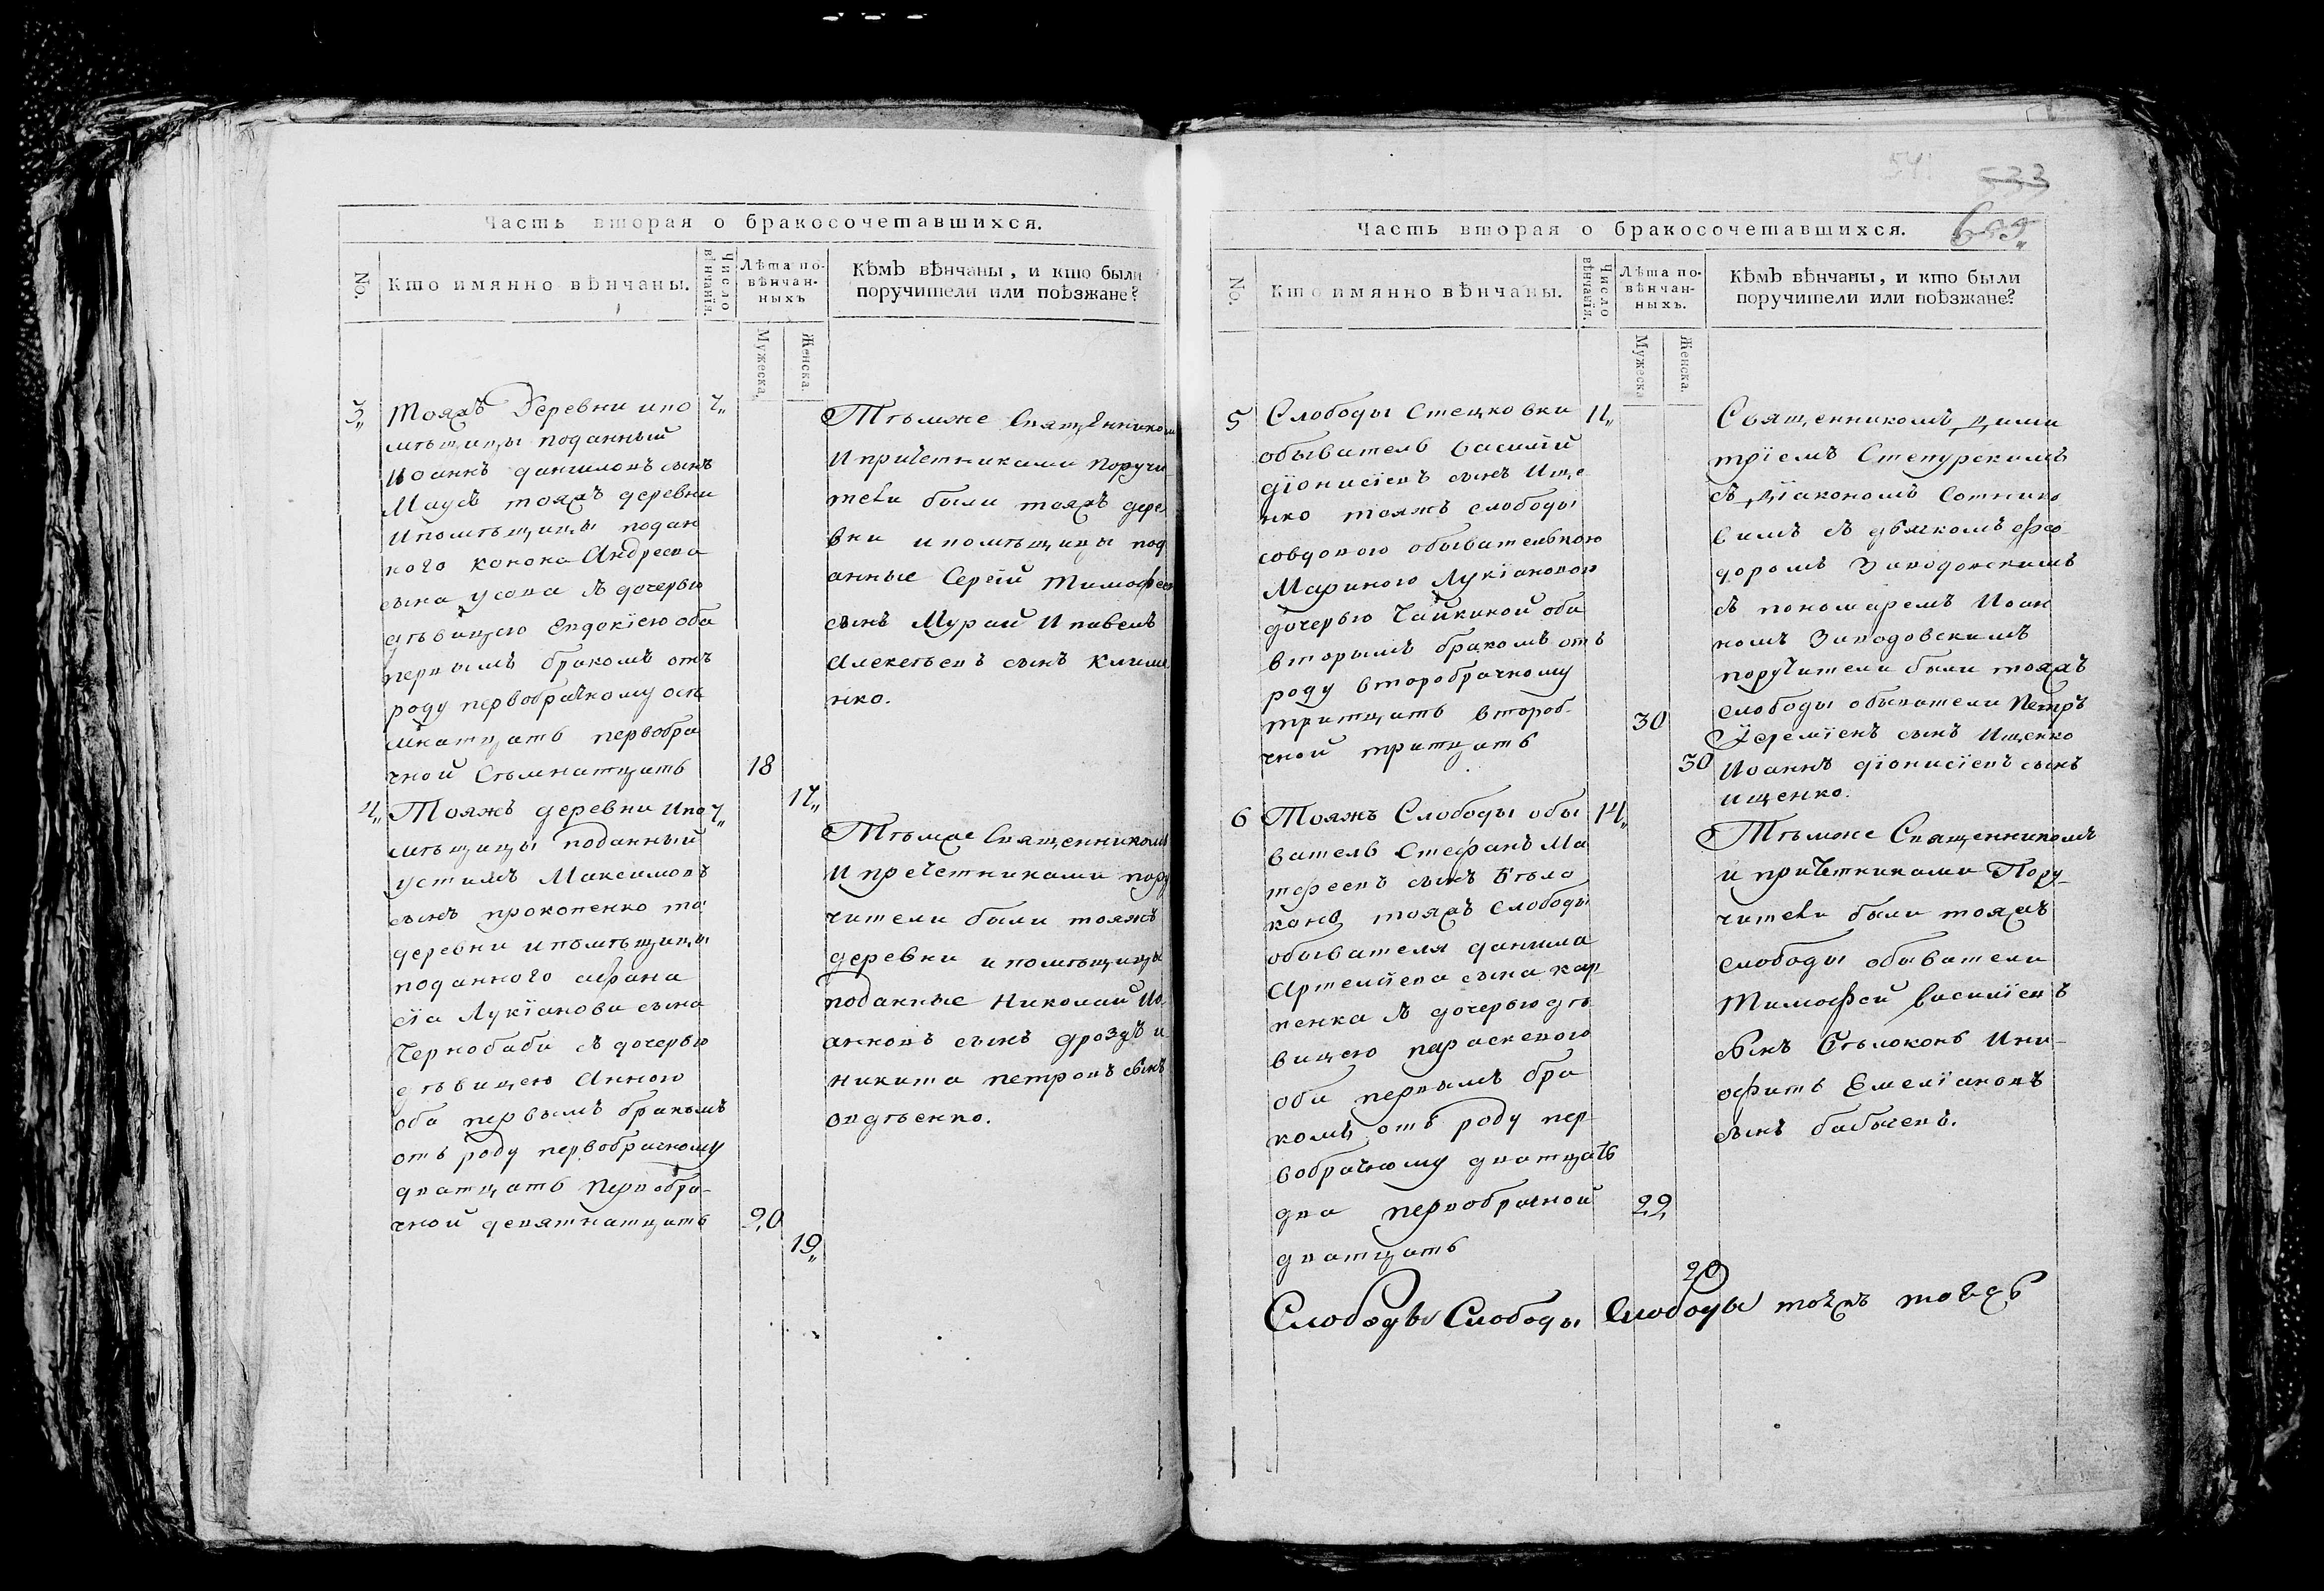 Часть вторая о бракосочетавшихся.
No.
Кто имянно вѣнчаны.
Число вѣнчанія.
Лѣта по-
вѣнчан-
ныхъ
Мужеска.
Женска.
Кѣмъ вѣнчаны, и кто были
поручители или поѣзжане?
3„ Тояжъ Деревни ипо 7„
мѣщицы поданный
Иоаннъ даниловъ сынъ
тояжъ деревни
Ипомѣщицы подан
ного конона Андреева
сына усова съ дочерью
дѣвицею Евдокїею оба
первымъ бракомъ отъ
роду первобрачному осе
мнатцать первобра
чной Седмнатцать 18
17„
Тѣмже Священником
И причетниками поручи
тели были тояжъ дере
вни ипомѣщицы под
анные Сергїй Тимофеев
сынъ Мурай И павелъ
Алексѣевъ сынъ Климе
нко.
4„ Тояжъ деревни Ипо 7„
мѣщицы поданный
устимъ Максимовъ
сынъ прокопенко то
деревни ипомѣщицы
поданного афана
сїа Лукїанова сына
Чернобаба съ дочерью
дѣвицею Анною
оба первымъ бракомъ
отъ роду первобрачному
дватцать первобра-
чной девятнатцать 20
19„
Тѣмже Священникомъ
И пречетниками пору
чители были тояжъ
деревни ипомѣщицы
поданные Николай Ио
анновъ сынъ дроздъ и
никита петровъ сынъ
авдѣенко.
541
633
Часть вторая о бракосочетавшихся.
No.
Кто имянно вѣнчаны.
Число вѣнчанія.
Лѣта по-
вѣнчан-
ныхъ.
Мужеска
Женска.
Кѣмъ вѣнчаны, и кто были
поручители или поѣзжане?
5 Слободы Стецковки 11„
обыватель василїй
дїонисїевъ сынъ Ище
нко тояжъ слободы
совдовою обывателькою
Мариною Лукїановою
дочерью Чайкиной оба
вторымъ бракомъ отъ
роду второбрачному
тритцать второб-
чной тритцать
30
30
Священникомъ Дими
трїемъ Степурскимъ
съ Дїакономъ Сотнико
вимъ съ дьячкомъ Фео-
доромъ Заводовскимъ
съ пономаремъ Иоан
номъ Заводовскимъ
поручители были тояжъ
слободы обыватели Петръ
Їеремїевъ сынъ Ищенко
Иоаннъ дїонисїевъ сынъ
ищенко.
6 Тояжъ Слободы обы 14„
ватель Стефанъ Ма
тфеевъ сынъ Бѣло
конъ тояжъ слободы
обывателя данила
Артемїева сына кар
пенка съ дочерью дѣ
вицею параскевою
оба первымъ бра
комъ отъ роду пер-
вобрачному дватцать
два первобрачной 22
дватцать
20
Тѣмже Священникомъ
и причетниками Пору-
чители были тояжъ
слободы обыватели
Тимофей василїевъ
сынъ Бѣлоконь Ини-
офитъ Емелїановъ
сынъ бабичевъ.
Слободы Слободы Слободы тояжъ